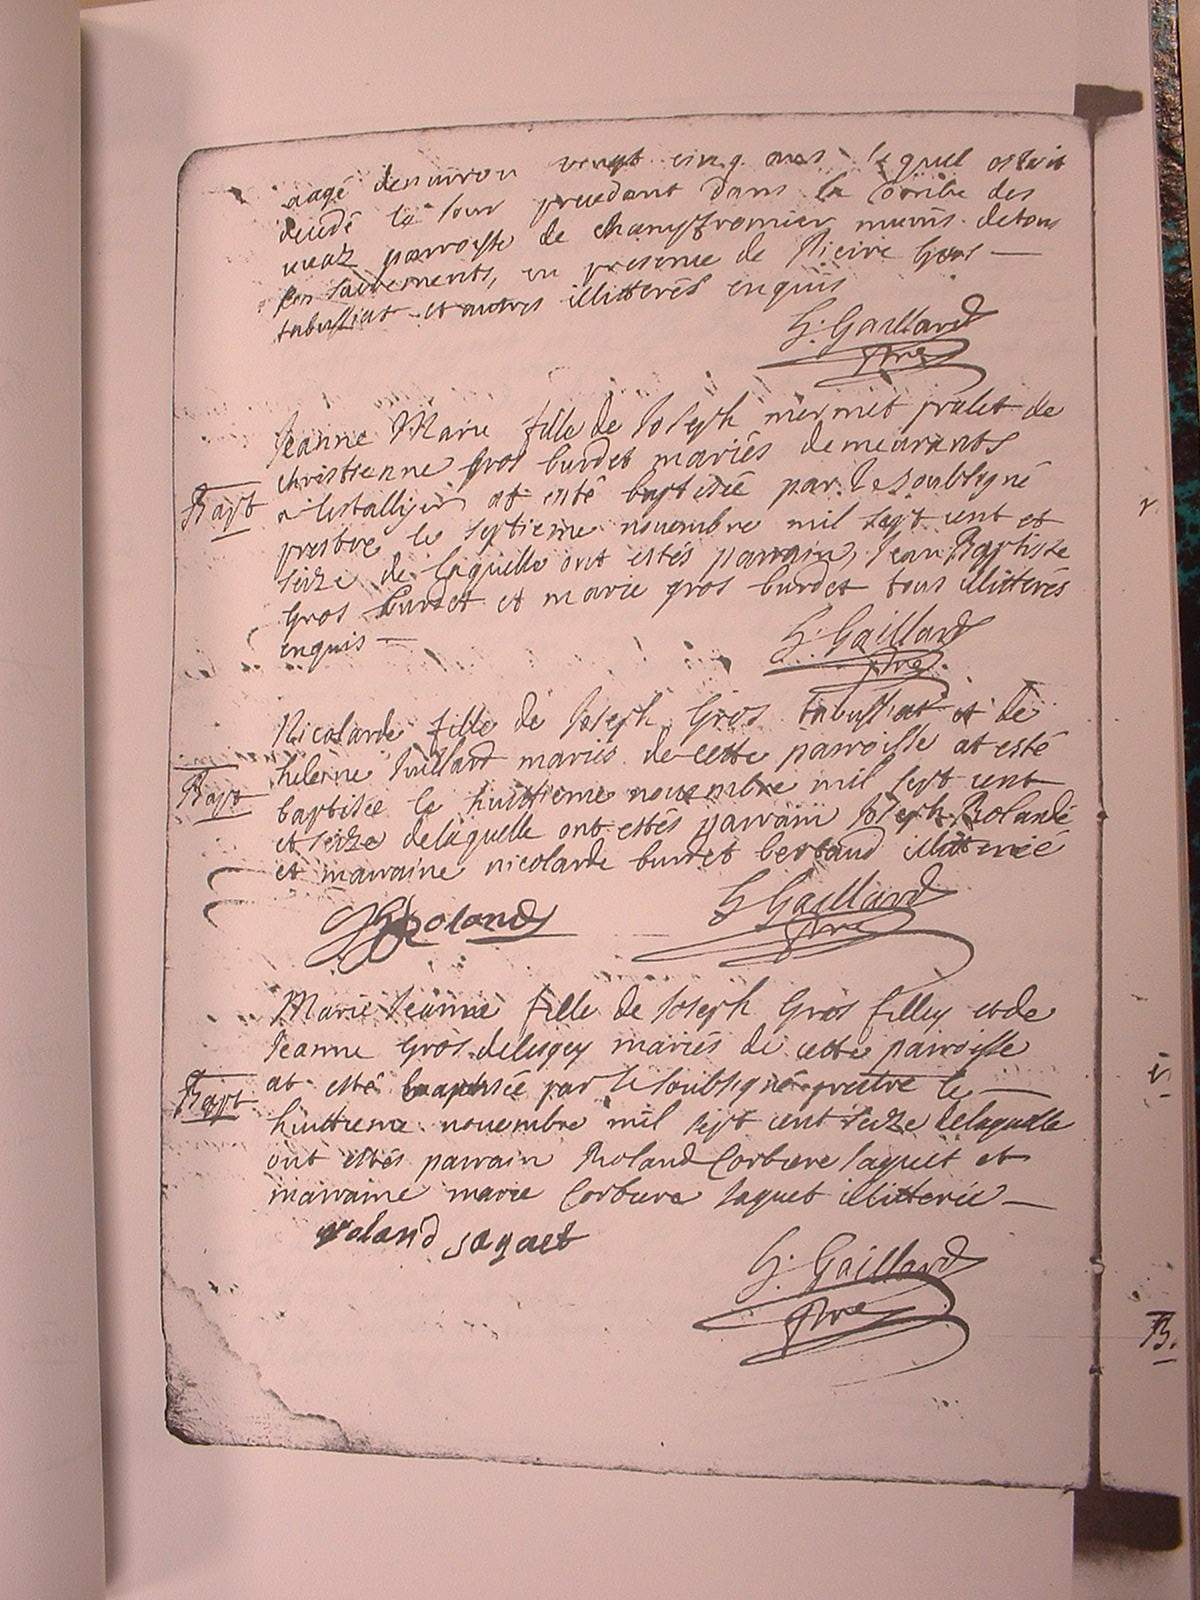 aagé denuiron vingt cinq ans lequel estoit
decedé le Jour precedant dans la Combe des
muaz parroisse de champfromier munis de tous
les sacrements, en presence de Pieire Gros —
tabussiat et autres illitterés enquis
G: Gaillard
ptre
Jeanne Marie fille de Joseph mermet pralet de
christienne gros burdet mariés demeurants
Bapt
at esté baptisée par le soubsigné
prestre le septieme nouembre mil sept cent et
seize de laquelle ont estés parrain, Jean Baptiste
Gros burdet et marie gros burdet tous illitterés
enquis —
G: Gaillard
ptre.
Nicolarde fille de Joseph Gros tabussiat et de
helenne Juillard mariés de cette parroisse at esté
Bapt
baptisée le huittieme nouembre mil sept cent
et seize delaquelle ont estés parrain Joseph Rolandé
et marraine nicolarde burdet bertoud illitterée
Roland
G Gaillard
ptre
Marie Jeanne fille de Joseph Gros filley et de
Jeanne Gros delugey mariés de cette parroisse
Bapt
at esté baptisée par le soubsigné prestre le —
huittieme nouembre mil sept cent seize delaquelle
ont estés parrain Roland Corbiere Jaquet et
marraine marie Corbiere Jaquet illitterée —
roland jaquet
G: Gaillard
ptre
B.